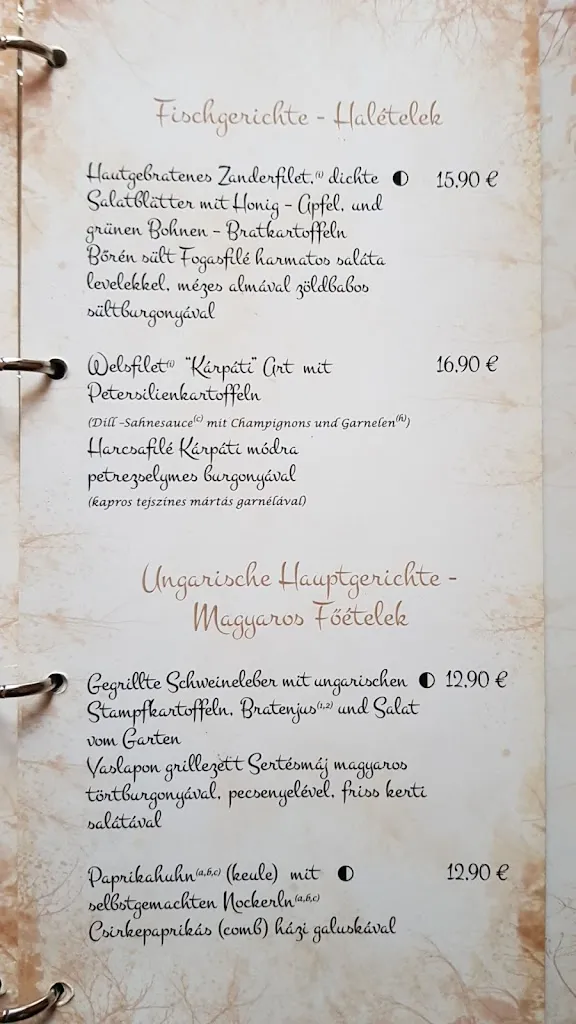 Fischgerichte - Halételek
Hautgebratenes Zanderfilet,(i) dichte ◐ 15,90 €
Salatblätter mit Honig - Apfel, und
grünen Bohnen - Bratkartoffeln
Bőrén sült Fogasfilé harmatos saláta
levelekkel, mézes almával zöldbabos
sültburgonyával
Welsfilet(i) "Kárpáti" Art mit 16,90 €
Petersilienkartoffeln
(Dill -Sahnesauce(c) mit Champignons und Garnelen(h))
Harcsafilé Kárpáti módra
petrezselymes burgonyával
(kapros tejszínes mártás garnélával)
Ungarische Hauptgerichte -
Magyaros Főételek
Gegrillte Schweineleber mit ungarischen ◐ 12,90 €
Stampfkartoffeln, Bratenjus(1,2) und Salat
vom Garten
Vaslapon grillezett Sertésmáj magyaros
törtburgonyával, pecsenyelével, friss kerti
salátával
Paprikahuhn(a,b,c) (keule) mit ◐ 12,90 €
selbstgemachten Nockerln(a,b,c)
Csirkepaprikás (comb) házi galuskával